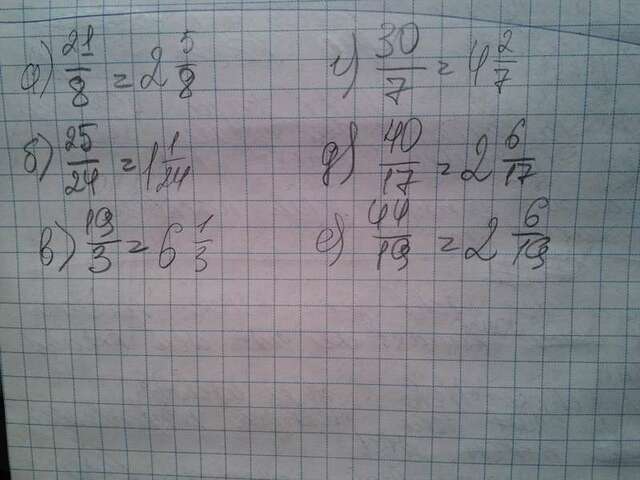 а) 21/8 = 2 5/8
б) 25/24 = 1 1/24
в) 19/3 = 6 1/3
г) 30/7 = 4 2/7
д) 40/17 = 2 6/17
е) 44/19 = 2 6/19